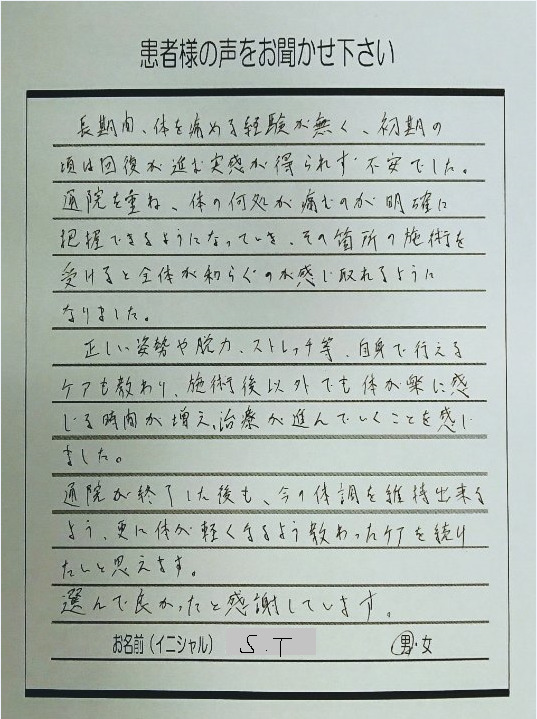 患者様の声をお聞かせ下さい
長期間、体を痛める経験が無く、初期の
頃は回復が進む実感が得られず不安でした。
通院を重ね、体の何処が痛むのか明確に
把握できるようになっていき、その箇所の施術を
受けると全体が和らぐのが感じ取れるように
なりました。
正しい姿勢や脱力、ストレッチ等、自身で行える
ケアも教わり、施術後以外でも体が楽に感
じる時間が増え、治療が進んでいくことを感じ
ました。
通院が終了した後も、今の体調を維持出来る
よう、更に体が軽くなるよう教わったケアを続け
たいと思えます。
選んで良かったと感謝しています。
お名前(イニシャル) S.T 男・女